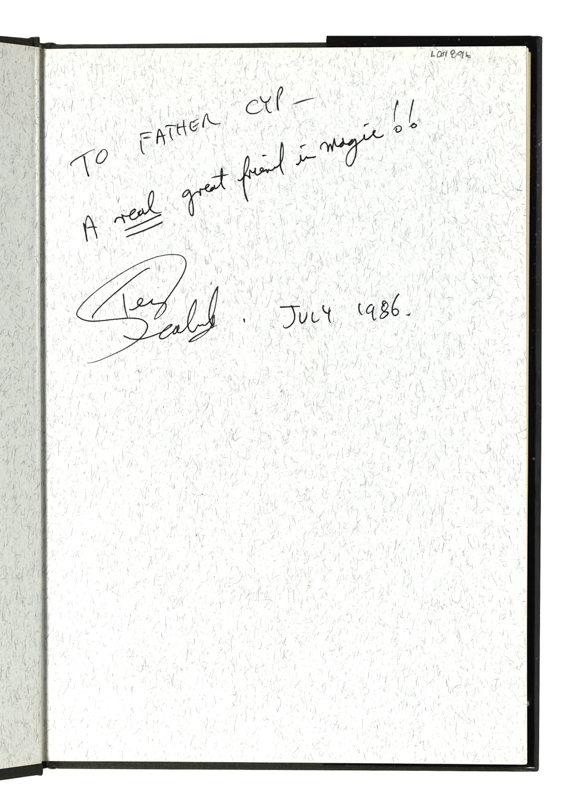 LOH 896
TO FATHER CYP —
A real great friend in magic!!
Terry
Seabrooke. JULY 1986.